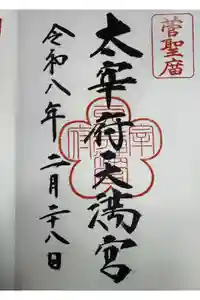 菅聖廟
太宰府天満宮
令和八年二月二十八日